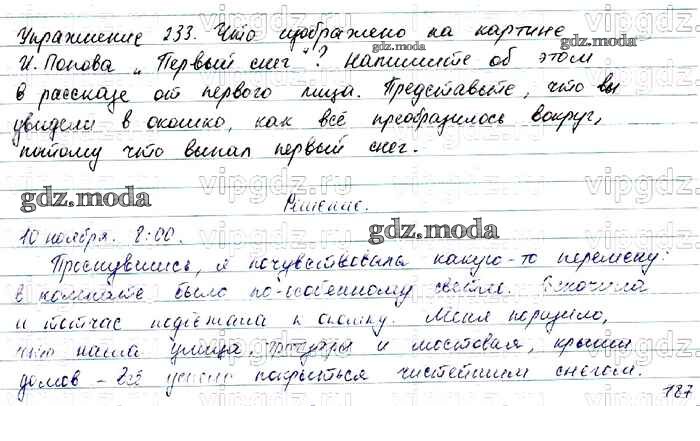 Упражнение 233. Что изображено на картине
И. Попова „Первый снег"? Напишите об этом
в рассказе от первого лица. Представьте, что вы
увидели в окошко, как всё преобразилось вокруг,
потому что выпал первый снег.
Решение.
10 ноября. 8:00.
Проснувшись, я почувствовала какую-то перемену:
в комнате было по-особенному светло. Вскочила
и тотчас подбежала к окошку. Меня поразило,
что наша улица, и мостовая, крыши
домов – всё покрыться чистейшим снегом.
187
gdz.moda
gdz.moda
gdz.moda
gdz.moda
vipgdz.ru
vipgdz.ru
vipgdz.ru
vipgdz.ru